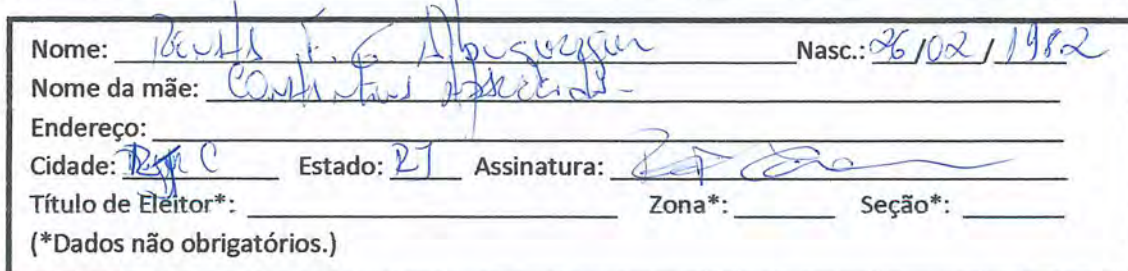 Nome: Renata F. G Albuquerque Nasc.: 26/02/1982
Nome da mãe: Aparecida
Endereço:
Cidade: Estado: RJ Assinatura:
Título de Eleitor*: Zona*: Seção*:
(*Dados não obrigatórios.)